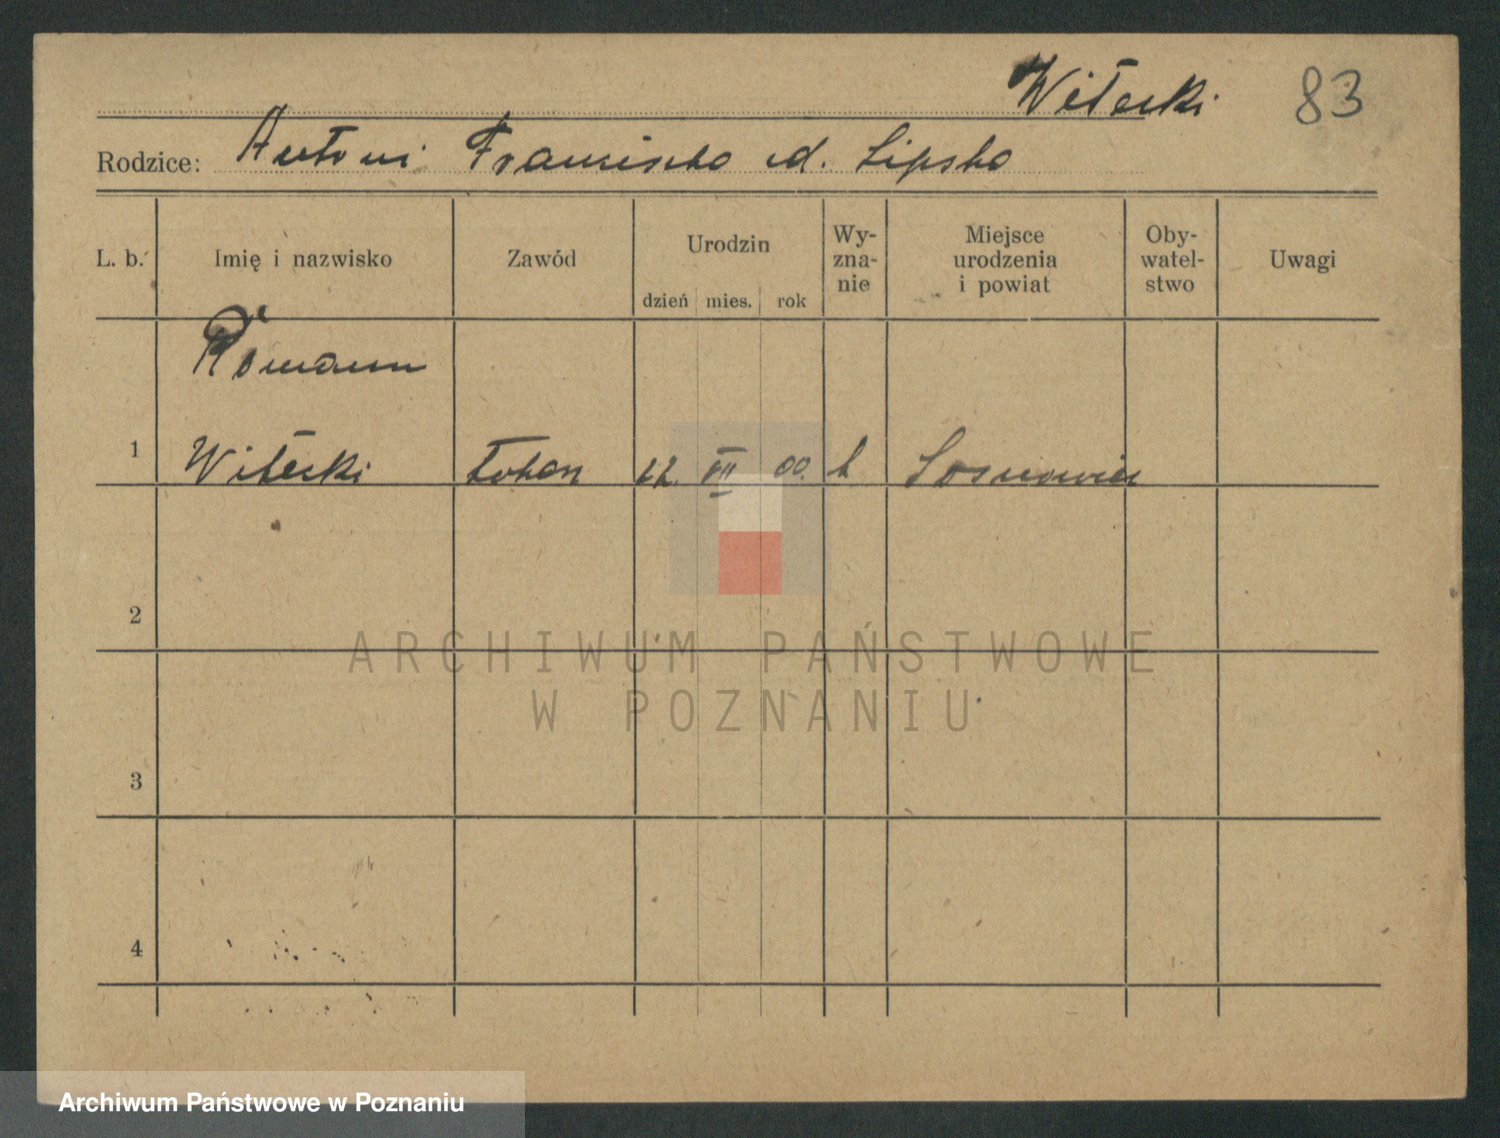 Witecki 83
Rodzice: Antoni Franciszka ud. Lipska
L. b. Imię i nazwisko Zawód Urodzin dzień mies. rok Wy-zna-nie Miejsce urodzenia i powiat Oby-watel-stwo Uwagi
Romann
1 Witecki VII 00. k. Sosnowiec
2
3
4
ARCHIWUM PAŃSTWOWE
W POZNANIU
Archiwum Państwowe w Poznaniu